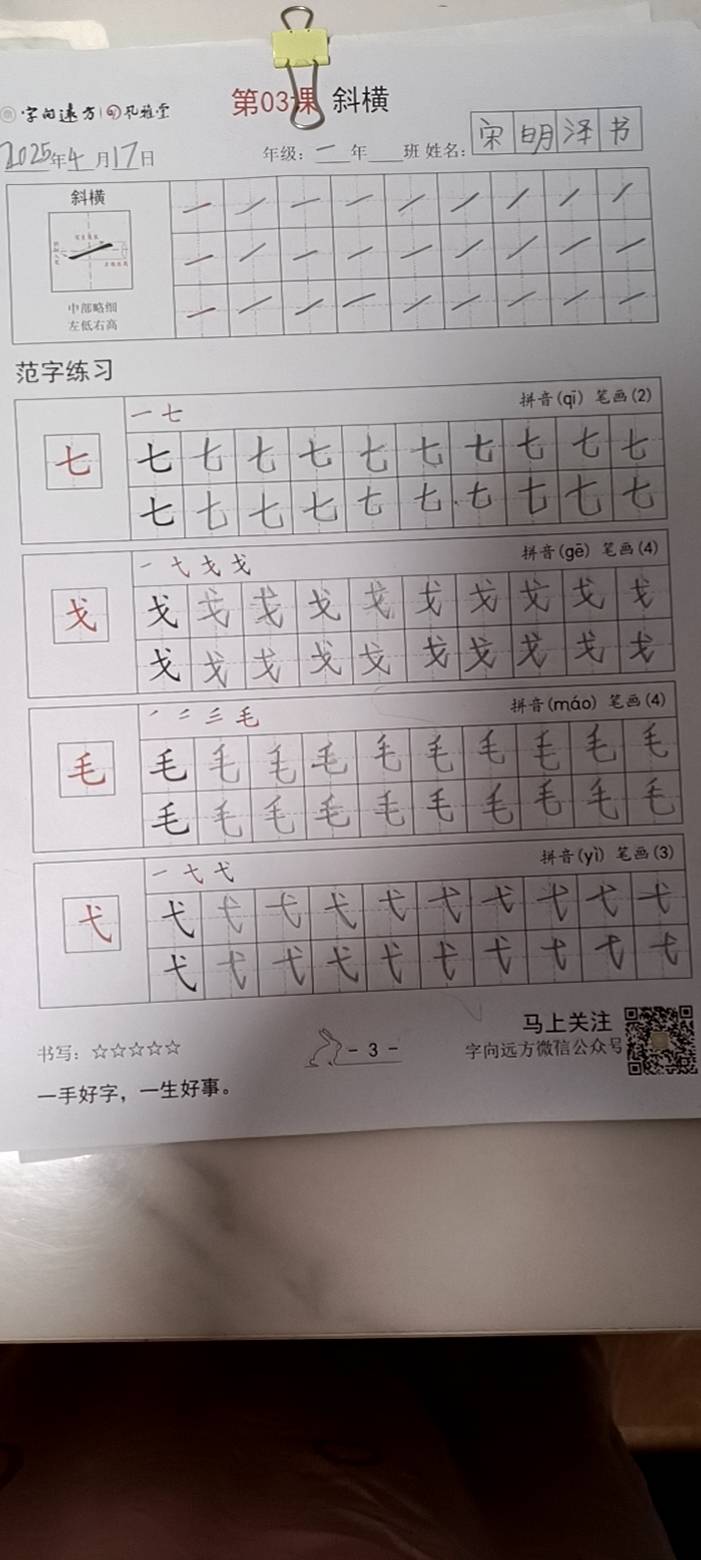 字向远方 孔雅堂
第03课 斜横
2025年4月17日
年级：一年 班 姓名：宋明泽书
斜横
中部略细
左低右高
范字练习
一 七
拼音(qī) 笔画(2)
七 七 七 七 七 七 七 七 七 七 七
七 七 七 七 七 七 七 七 七 七
拼音(gē) 笔画(4)
戈 戈 戈 戈 戈 戈 戈 戈 戈 戈 戈
戈 戈 戈 戈 戈 戈 戈 戈 戈 戈
拼音(máo) 笔画(4)
毛 毛 毛 毛 毛 毛 毛 毛 毛 毛 毛
毛 毛 毛 毛 毛 毛 毛 毛 毛 毛
拼音(yì) 笔画(3)
弋 弋 弋 弋 弋 弋 弋 弋 弋 弋 弋
弋 弋 弋 弋 弋 弋 弋 弋 弋 弋
书写：☆☆☆☆☆
- 3 -
马上关注
字向远方微信公众号
一手好字，一生好事。